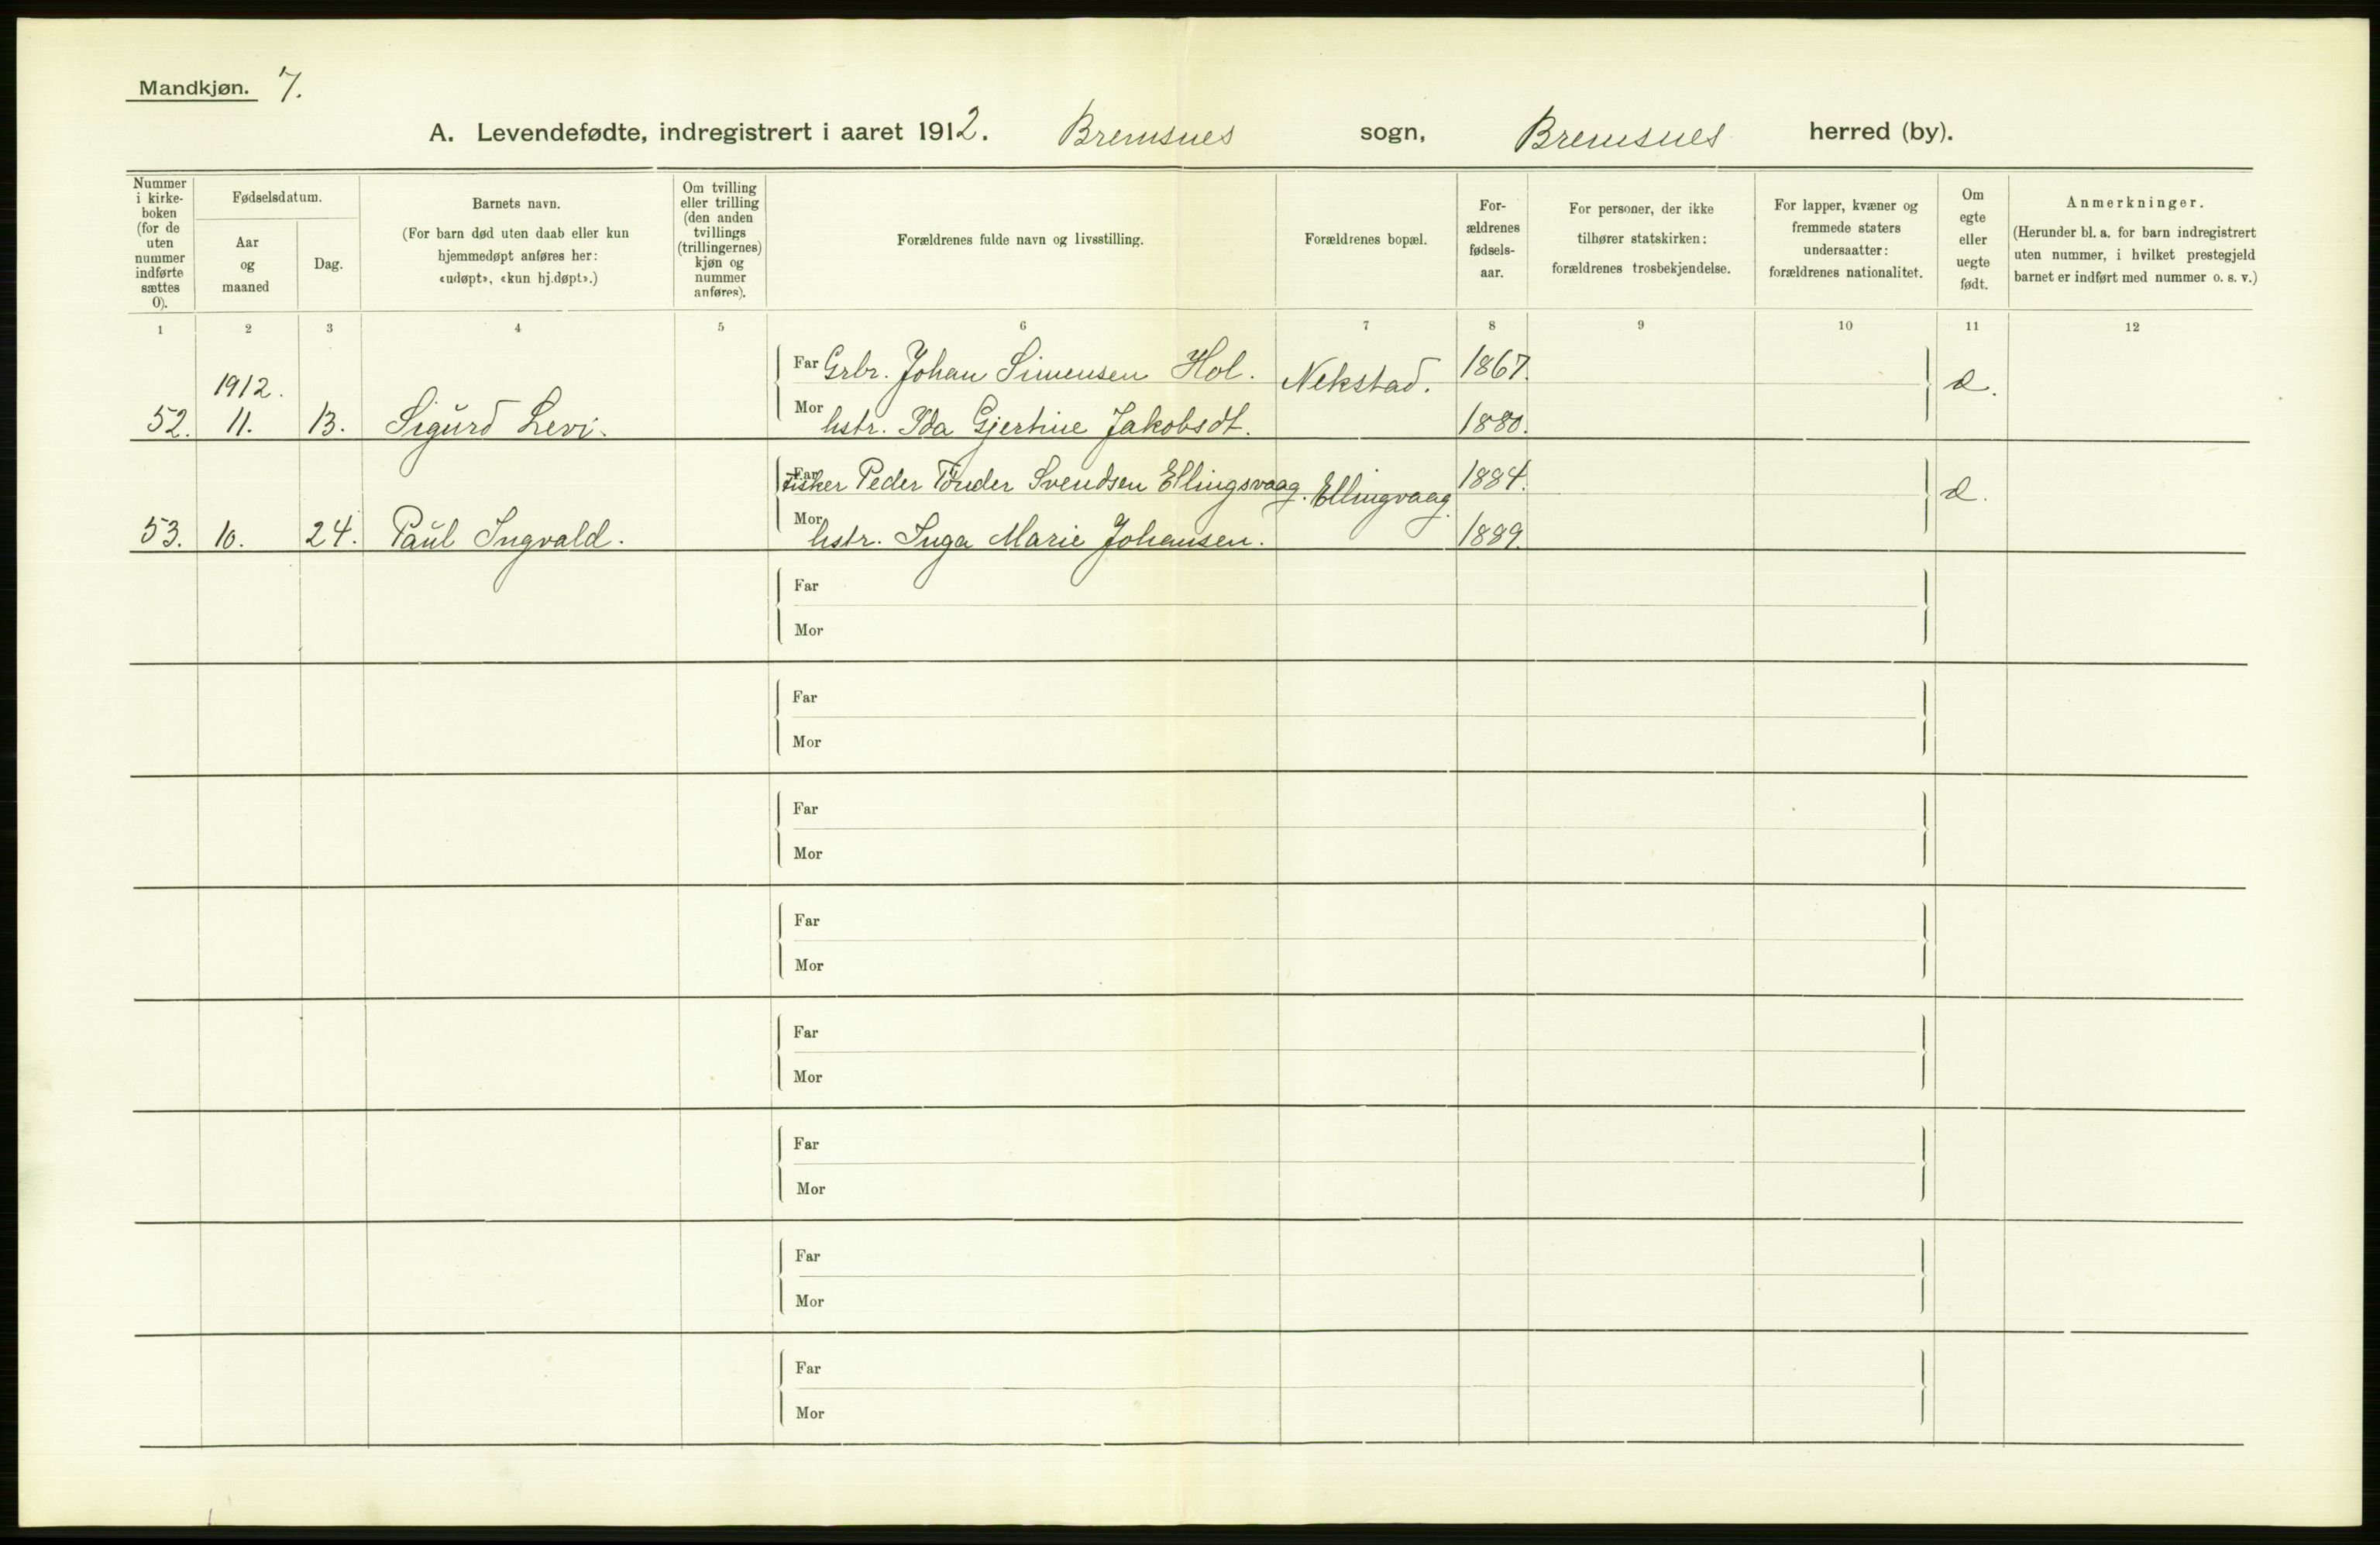 Mandkjøn. 7.
A. Levendefødte, indregistrert i aaret 1912. Bremsnes sogn, Bremsnes herred (by).
Nummer i kirke- boken (for de uten nummer indførte sættes 0).
Fødselsdatum.
Aar og maaned
Dag.
Barnets navn.
(For barn død uten daab eller kun hjemmedøpt anføres her: «udøpt», «kun hj.døpt».)
Om tvilling eller trilling (den anden tvillings (trillingernes) kjøn og nummer anføres).
Forældrenes fulde navn og livsstilling.
Forældrenes bopæl.
For- ældrenes fødsels- aar.
For personer, der ikke tilhører statskirken: forældrenes trosbekjendelse.
For lapper, kvæner og fremmede staters undersaatter: forældrenes nationalitet.
Om egte eller uegte født.
Anmerkninger.
(Herunder bl. a. for barn indregistrert uten nummer, i hvilket prestegjeld barnet er indført med nummer o. s. v.)
1 2 3 4 5 6 7 8 9 10 11 12
Far Grbr. Johan Simensen Hol. Nekstad. 1867.
1912.
52. 11. 13. Sigurd Levi. Mor hstr. Ida Gjertine Jakobsdt. 1880.
Far Fisker Peder Tönder Svendsen Ellingsvaag. Ellingvaag. 1884.
53. 10. 24. Paul Ingvald. Mor hstr. Inga Marie Johansen. 1889.
Far
Mor
Far
Mor
Far
Mor
Far
Mor
Far
Mor
Far
Mor
Far
Mor
Far
Mor